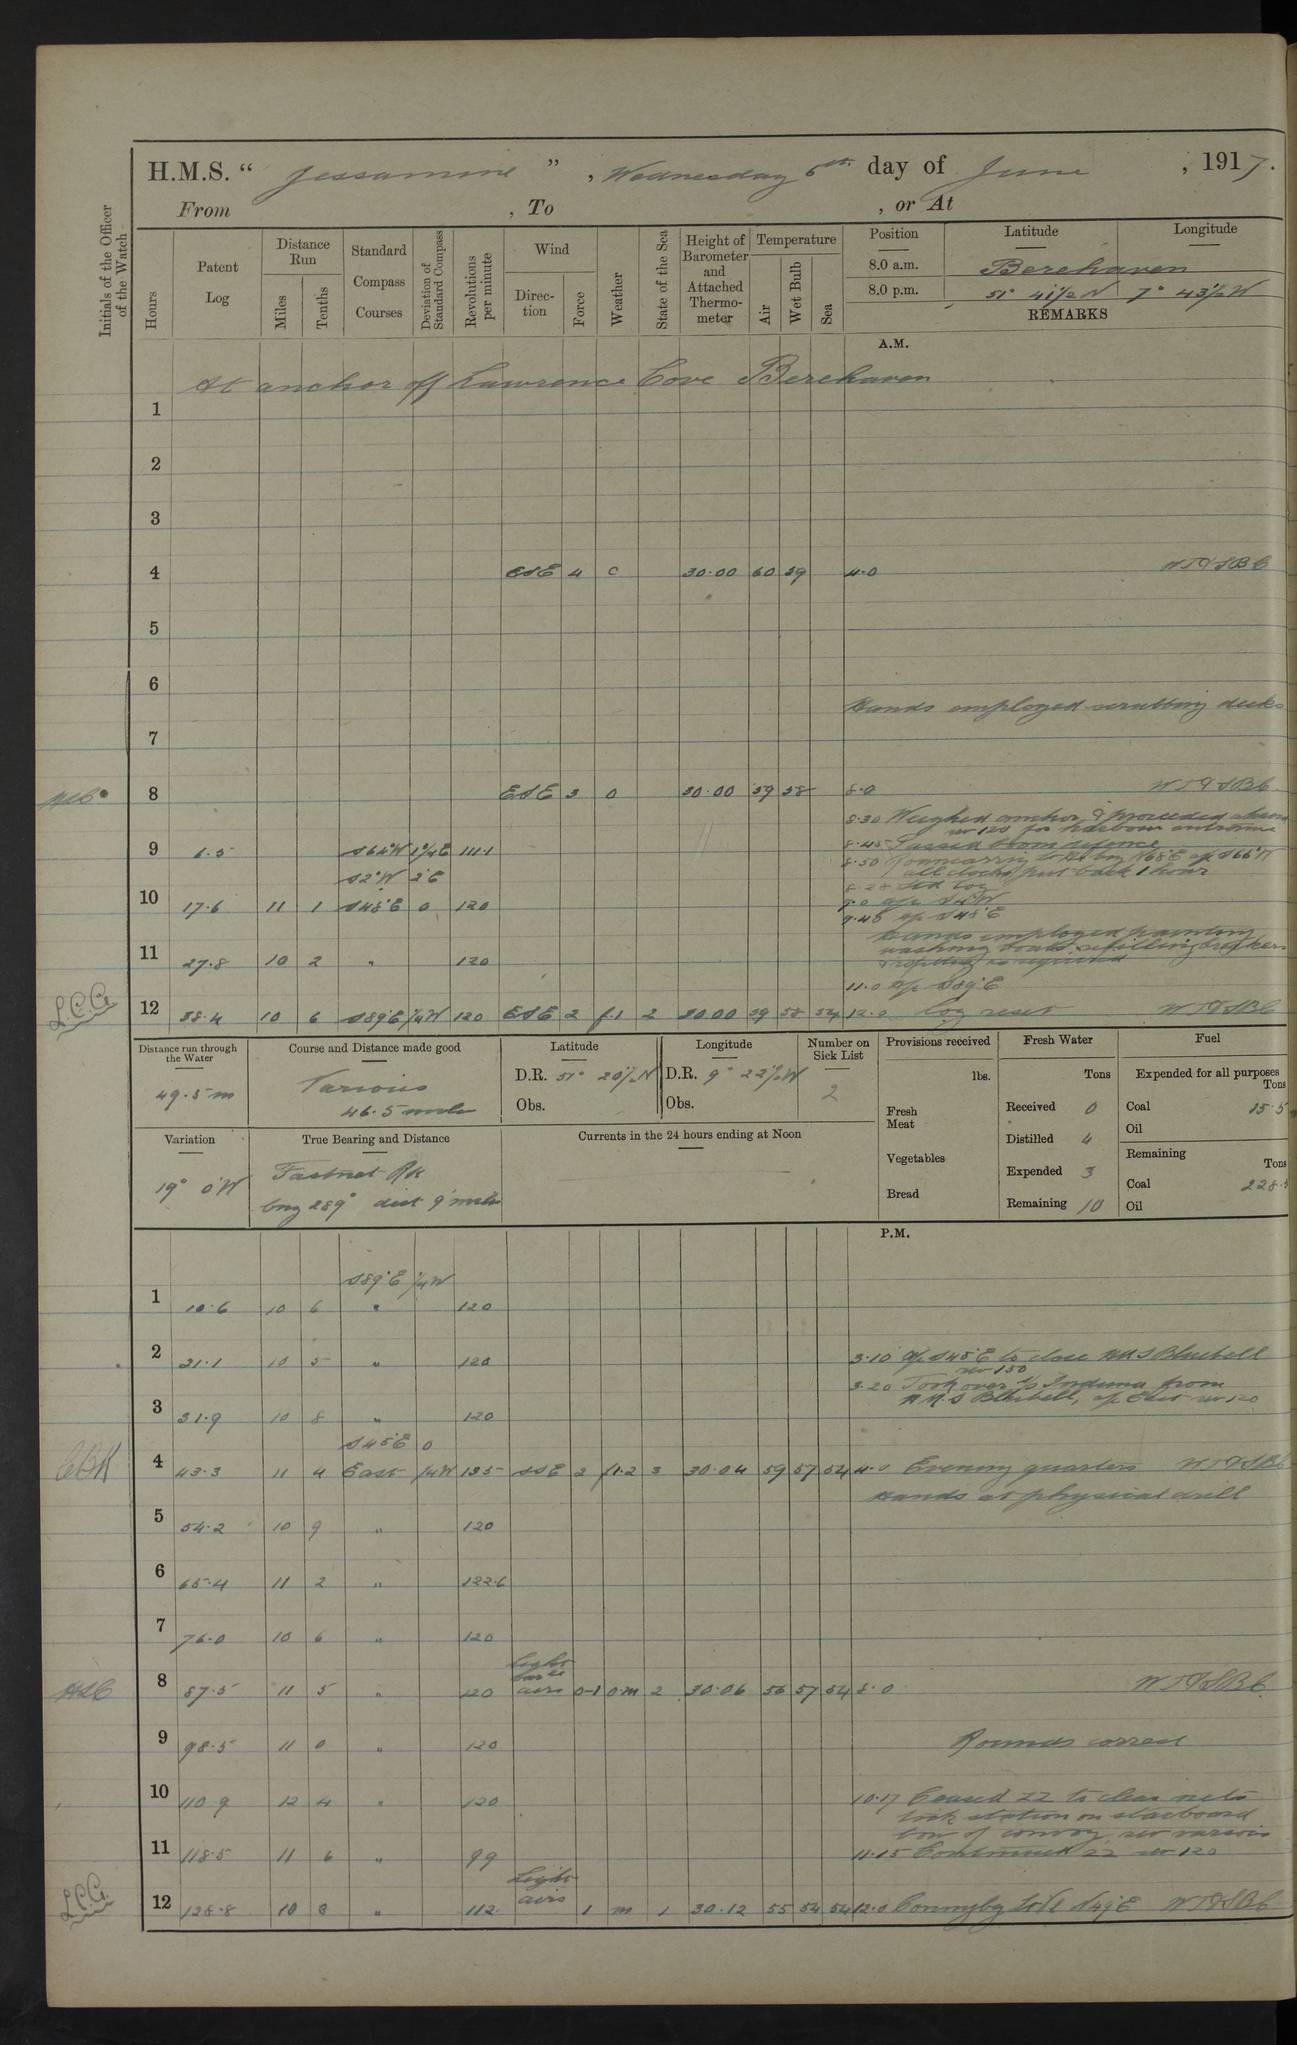 H.M.S. “ Jessamine ” , Wednesday 6th day of June , 1917.
From , To , or At
Initials of the Officer of the Watch
Hours
Patent Log
Distance Run
Miles
Tenths
Standard Compass Courses
Deviation of Standard Compass
Revolutions per minute
Wind
Direction
Force
Weather
State of the Sea
Height of Barometer and Attached Thermometer
Temperature
Air
Wet Bulb
Sea
Position Latitude Longitude
8.0 a.m. Berehaven
8.0 p.m. 51° 41½ N 7° 43½ W
REMARKS
A.M.
At anchor off Lawrence Cove Berehaven
1
2
3
4 ESE 4 c 30.00 60 59 4.0
5
6
Hands employed scrubbing decks
7
8 ESE 3 o 30.00 59 58 8.0
8.30 Weighed anchor & proceeded
for harbour entrance
9 6.5 S64°W 1¼E 111.1 8.45 Passed boom defence
8.50
all clocks put back 1 hour
S2°W 2°E
8.28 Set log
10 17.6 11 1 S48°E 0 120 9.0 a/c S2°W
9.48 a/c S48°E
Hands employed painting
washing boats refilling breakers
11 27.8 10 2 " 120
11.0 a/c S89°E
L.C.G. 12 38.4 10 6 S89°E ¼W 120 ESE 2 f.1 2 30.00 59 58 54 12.0 Log reset
Distance run through the Water
49.5 m
Course and Distance made good
Various
46.5 miles
Latitude
D.R. 51° 20½ N
Obs.
Longitude
D.R. 9° 22½ W
Obs.
Number on Sick List
2
Provisions received
lbs.
Fresh Meat
Vegetables
Bread
Fresh Water
Tons
Received 0
Distilled 4
Expended 3
Remaining 10
Fuel
Expended for all purposes
Tons
Coal 15.5
Oil
Remaining
Tons
Coal 228.5
Oil
Variation
19° 0'W
True Bearing and Distance
Fastnet Rk
brg 289° dist 9 miles
Currents in the 24 hours ending at Noon
P.M.
S89°E ¼W
1 10.6 10 6 " 120
2 21.1 10 5 " 120 3.10 a/c S45°E to close HMS Bluebell
rev 130
3.20 Took over s/s Induna from
3 31.9 10 8 " 120 H.M.S Bluebell, a/c East rev 120
S45°E 0
4 43.3 11 4 East ¼W 135 SSE 2 f1.2 3 30.04 59 57 54 4.0 Evening quarters
Hands at physical drill
5 54.2 10 9 " 120
6 65.4 11 2 " 122.6
7 76.0 10 6 " 120
Light
8 87.5 11 5 " 120 airs 0-1 o.m 2 30.06 56 57 54 8.0
9 98.5 11 0 " 120 Rounds correct
10 110.9 12 4 " 120 10.17 Ceased ZZ to clear nets
took station on starboard
bow of convoy, rev various
11 118.5 11 6 " 99 11.15 Continued ZZ rev 120
Light
L.C.G. 12 128.8 10 8 " 112 airs 1 m 1 30.12 55 54 54 12.0